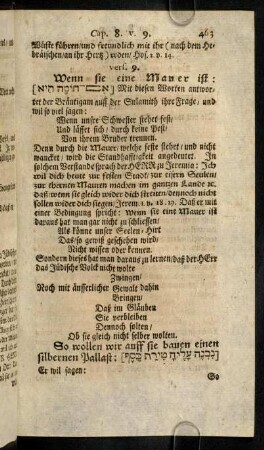 Cap. 8. v. 9. 463
Wüste führen/und freundlich mit ihr (nach dem He-
bräischen/an ihr Hertz) reden/Hos. 2. v. 14.
vers. 9.
Wenn sie eine Mauer ist:
[אם־ חומה היא] Mit diesen Worten antwor-
tet der Bräutigam auff der Sulamith ihre Frage/und
wil so viel sagen:
Wenn unser Schwester stehet fest/
Und lässet sich/durch keine Pest/
Von ihrem Bruder trennen.
Denn durch die Mauer/welche feste stehet/und nicht
wancket/wird die Standhafftigkeit angedeutet. In
solchem Verstande sprach der HERR zu Jeremia: Ich
wil dich heute zur festen Stadt/zur eisern Seulen/
zur ehrnen Mauren machen im gantzen Lande ꝛc.
daß/wenn sie gleich wider dich streiten/dennoch nicht
sollen wider dich siegen/Jerem. 1. v. 18. 19. Daß er mit
einer Bedingung spricht: Wenn sie eine Mauer ist
daraus hat man gar nicht zu schliessen/
Als könne unser Seelen-Hirt
Das/so gewiß geschehen wird/
Nicht wissen oder kennen.
Sondern dieses hat man daraus zu lernen/daß der HErr
das Jüdische Volck nicht wolte
Zwingen/
Noch mit äusserlicher Gewalt dahin
Bringen/
Daß im Glauben
Sie verbleiben
Dennoch solten/
Ob sie gleich nicht selber wolten.
So wollen wir auff sie bauen einen
silbernen Pallast: [נבנה עליה טירת כסף]
Er wil sagen:
So